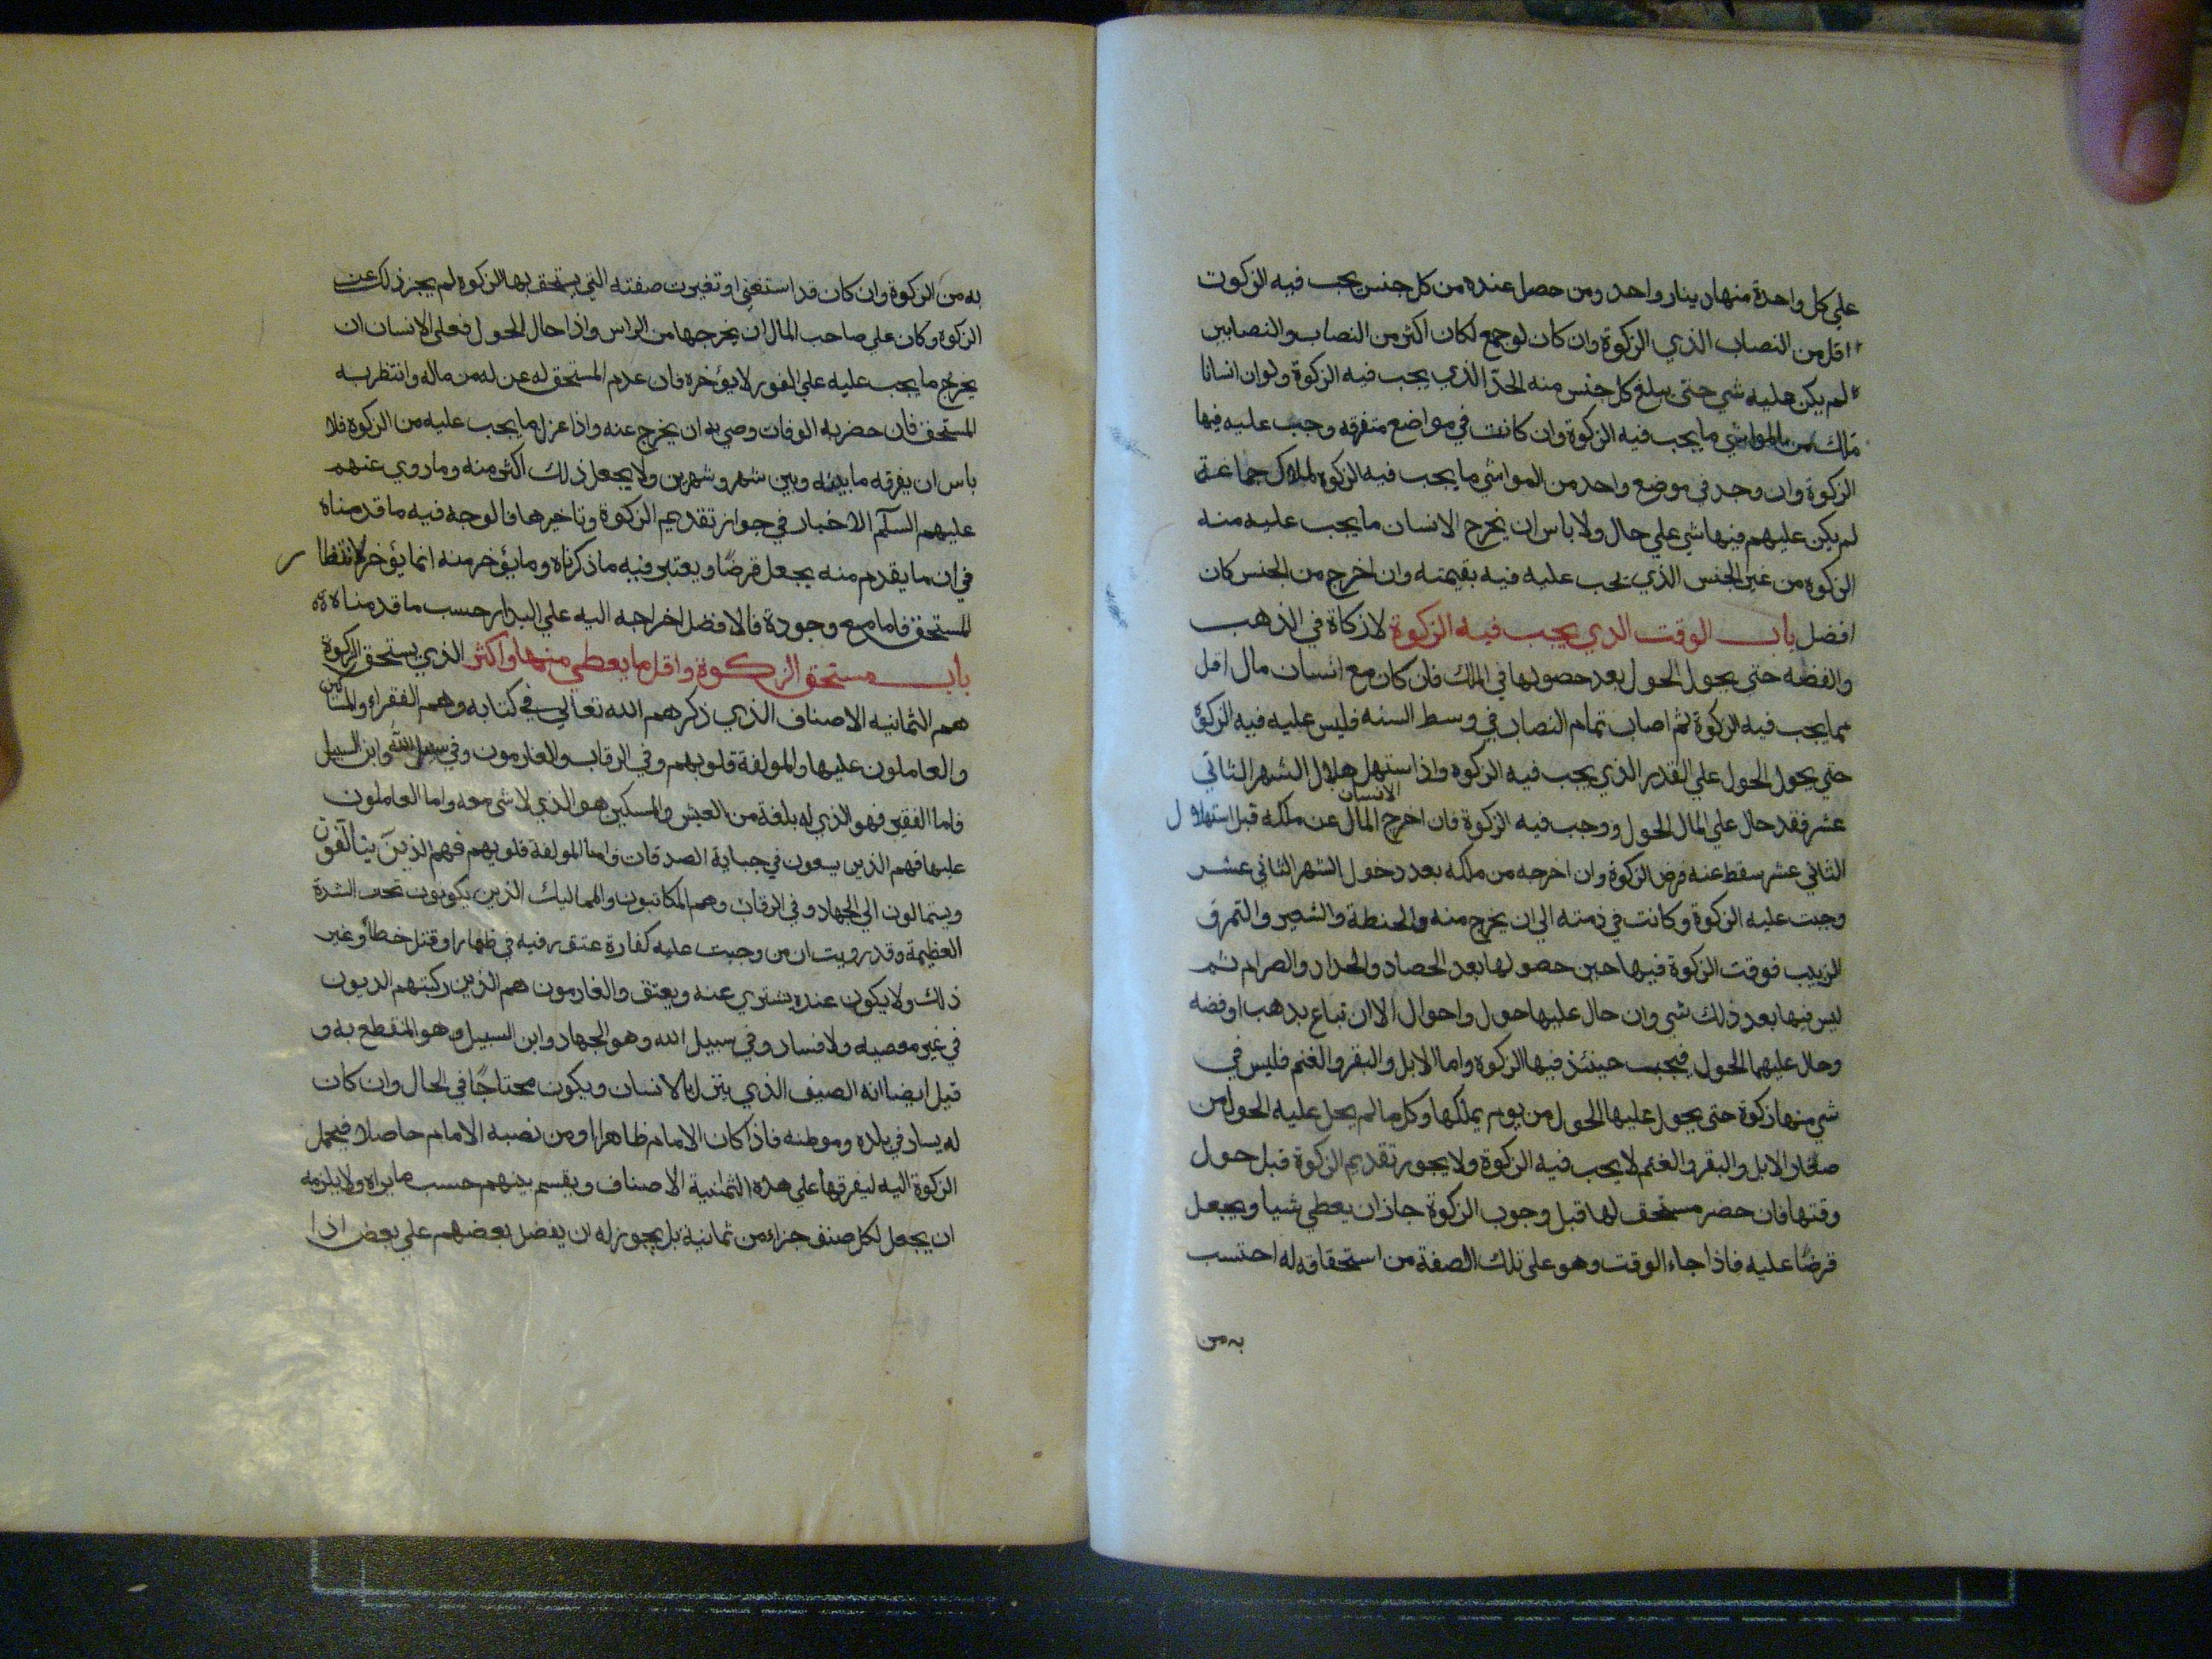 علي كل واحدة منها دينار واحد ومن حصل عنده من كل جنس يجب فيه الزكوت
اقل من النصاب الذي الزكوة وان كان لو جمع لكان اكثر من النصاب والنصابين
لم يكن عليه شي حتى يبلغ كل جنس منه الحدّ الذي يجب فيه الزكوة ولو ان انسانا
ملك من المواشي ما يجب فيه الزكوة وان كانت في مواضع متفرقه وجب عليه فيها
الزكوة وان وجد في موضع واحد من المواشي ما يجب فيه الزكوه لملاك جماعة
لم يكن عليهم فيها شي علي حال ولا باس ان يخرج الانسان ما يجب عليه منه
الزكوه من غير الجنس الذي يجب عليه فيه بقيمته وان اخرج من الجنس كان
افضل باب الوقت الذي يجب فيه الزكوة لا زكاة في الذهب
والفضه حتى يحول الحول بعد حصولها في الملك فان كان مع انسان مال اقل
مما يجب فيه الزكوة ثم اصاب تمام النصاب في وسط السنه فليس عليه فيه الزكوة
حتي يحول الحول علي القدر الذي يجب فيه الزكوه واذا استهل هلال الشهر الثاني
عشر فقد حال علي المال الحول ووجب فيه الزكوة فان اخرج الانسان المال عن ملكه قبل استهلال
الثاني عشر سقط عنه فرض الزكوة وان اخرجه من ملكه بعد دخول الشهر الثاني عشر
وجبت عليه الزكوة وكانت في ذمته الي ان يخرج منه والحنطة والشعير والتمر و
الزبيب فوقت الزكوة فيها حين حصولها بعد الحصاد والجداد والصرام ثم
ليس فيها بعد ذلك شي وان حال عليها حول واحوال الا ان تباع بذهب او فضه
وحال عليهما الحول فيجب حينئذ فيها الزكوه واما الابل والبقر والغنم فليس في
شي منها زكوة حتى يحول عليها الحول من يوم يملكها وكل ما لم يحل عليه الحول من
صغار الابل والبقر والغنم لا يجب فيه الزكوة ولا يجوز تقديم الزكوة قبل حول
وقتها فان حضر مستحق لها قبل وجوب الزكوة جاز ان يعطي شيا ويجعل
قرضًا عليه فاذا جاء الوقت وهو على تلك الصفة من استحقاقه له احتسب
به من
به من الزكوة وان كان قد استغني او تغيرت صفته التي يستحق بها الزكوه لم يجز ذلك عن
الزكوه وكان علي صاحب المال ان يخرجها من الراس واذا حال الحول فعلى الانسان ان
يخرج ما يجب عليه علي الفور لا يؤخره فان عدم المستحق له عن له من ماله وانتظر به
المستحق فان حضر به الوفات وصي به ان يخرج عنه واذا عزل ما يجب عليه من الزكوة فلا
باس ان يفرقه ما بينه وبين شهر وشهرين ولا يجعل ذلك اكثر منه وما روي عنهم
عليهم السلم الاخبار في جواز تقديم الزكوة وتاخيرها فالوجه فيه ما قدمناه
في ان ما يقدم منه يجعل قرضًا ويعتبر فيه ما ذكرناه وما يؤخر منه انما يؤخر لانتظار
المستحق فاما مع وجودة فالافضل اخراجه اليه علي البدار حسب ما قدمناه
باب مستحق الزكوة واقل ما يعطي منها واكثر الذي يستحق الزكوة
هم الثمانيه الاصناف الذي ذكرهم الله تعالي في كتابه وهم الفقراء والمساكين
والعاملون عليها والمولفة قلوبهم وفي الرقاب والغارمون وفي سبيل الله وابن السبيل
فاما الفقير فهو الذي له بلغة من العيش والمسكين هو الذي لا شي معه واما العاملون
عليها فهم الذين يسعون في جباية الصدقات واما المولفة قلوبهم فهم الذين يتالفون
ويستمالون الي الجهاد وفي الرقاب وهم المكاتبون والمماليك الذين يكونون تحت الشدة
العظيمة وقد رويت ان من وجبت عليه كفارة عتق رقبه في ظهار او قتل خطأ وغير
ذلك ولا يكون عنده يشتري عنه ويعتق والغارمون هم الذين ركبتهم الديون
في غير معصيه ولا فساد وفي سبيل الله وهو الجهاد وابن السبيل وهو المنقطع به و
قيل ايضا انه الضيف الذي ينزل بالانسان ويكون محتاجًا في الحال وان كان
له يسار في بلده وموطنه فاذا كان الامام ظاهرا او من نصبه الامام حاصلا فيحمل
الزكوة اليه ليفرقها علي هذه الثمانية الاصناف ويقسم بينهم حسب ما يراه ولا يلزمه
ان يجعل لكل صنف جزاء من ثمانية بل يجوز له ان يفضل بعضهم علي بعض اذا